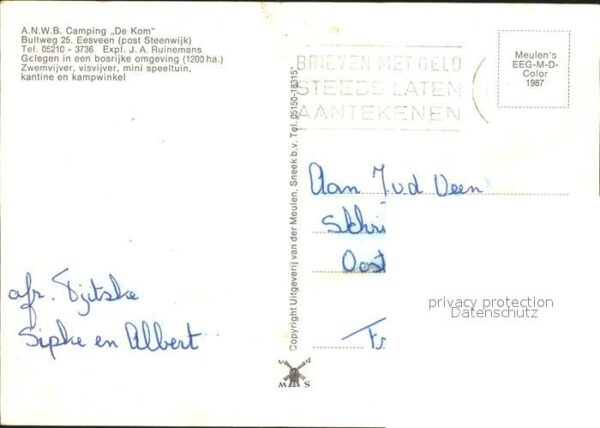 A.N.W.B. Camping „De Kom"
Bultweg 25. Eesveen (post Steenwijk)
Tel. 05210 - 3736 Expl. J. A. Ruinemans
Gelegen in een bosrijke omgeving (1200 ha.)
Zwemvijver, visvijver, mini speeltuin,
kantine en kampwinkel
BRIEVEN MET GELD
STEEDS LATEN
AANTEKENEN
Meulen's
EEG-M-D-
Color
1987
Copyright Uitgeverij van der Meulen, Sneek b.v. Tel. 05150-18315
Aan J v.d Veen
Schri
Oost
Fr
afz. Tjitske
Sipke en Albert
privacy protection
Datenschutz
v d
W S M